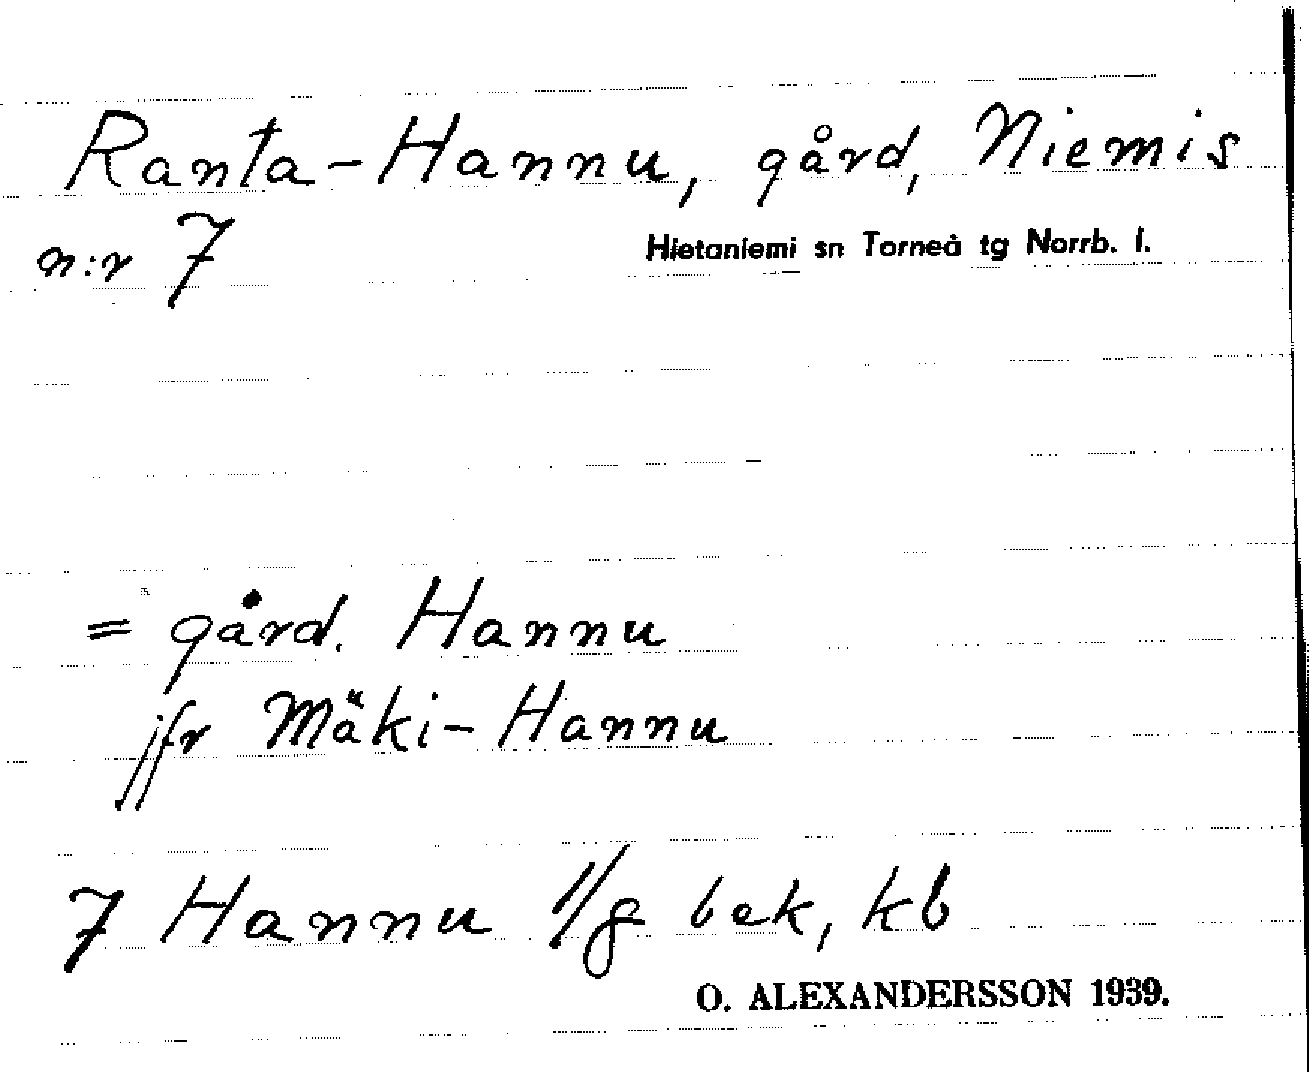 Ranta-Hannu, gård, Niemis
n:r 7
Hietaniemi sn Torneå tg Norrb. l.
= gård. Hannu
jfr Mäki-Hannu
7 Hannu 1/8 bek, kb
O. ALEXANDERSSON 1939.